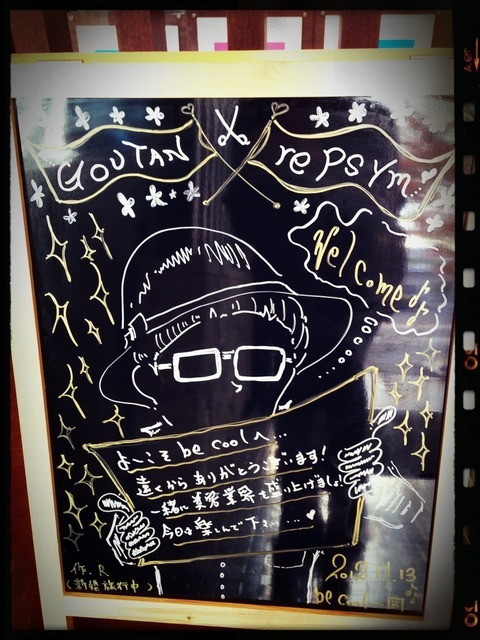 GOUTAN
rePSYm...
Welcome
よーこそ be cool へ...
遠くから ありがとうございます!
一緒に 美容業界を盛り上げましょ!
今日は 楽しんで下さい...
作.R
(新婚旅行中)
2012.11.13
be cool 一同